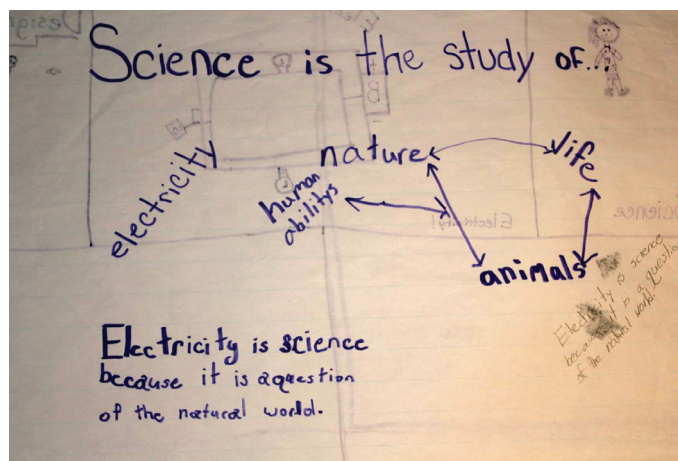 Science is the study of...
electricity
nature
life
human
abilitys
animals
Electricity is science
because it is a question
of the natural world.
Electricity is science
because it is a question
of the natural world.